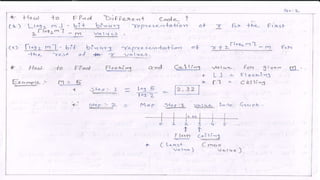 * How to Find Different Code ?
(1) ⌊log₂ m⌋ - bit binary representation of r for the first
2^⌈log₂ m⌉ - m values.
(2) ⌈log₂ m⌉ - bit binary representation of r + 2^⌈log₂ m⌉ - m for
the rest of the values.
* How to Find Flooring and Ceiling value for given m.
* ⌊ ⌋ = Flooring
* ⌈ ⌉ = Ceiling
Example :- m = 5
* Step : 1 = log 5 / log 2 = 2.32
* Step : 2 = Map Step-1 value into Graph.
Floor Ceiling
* (Least value) (max value)